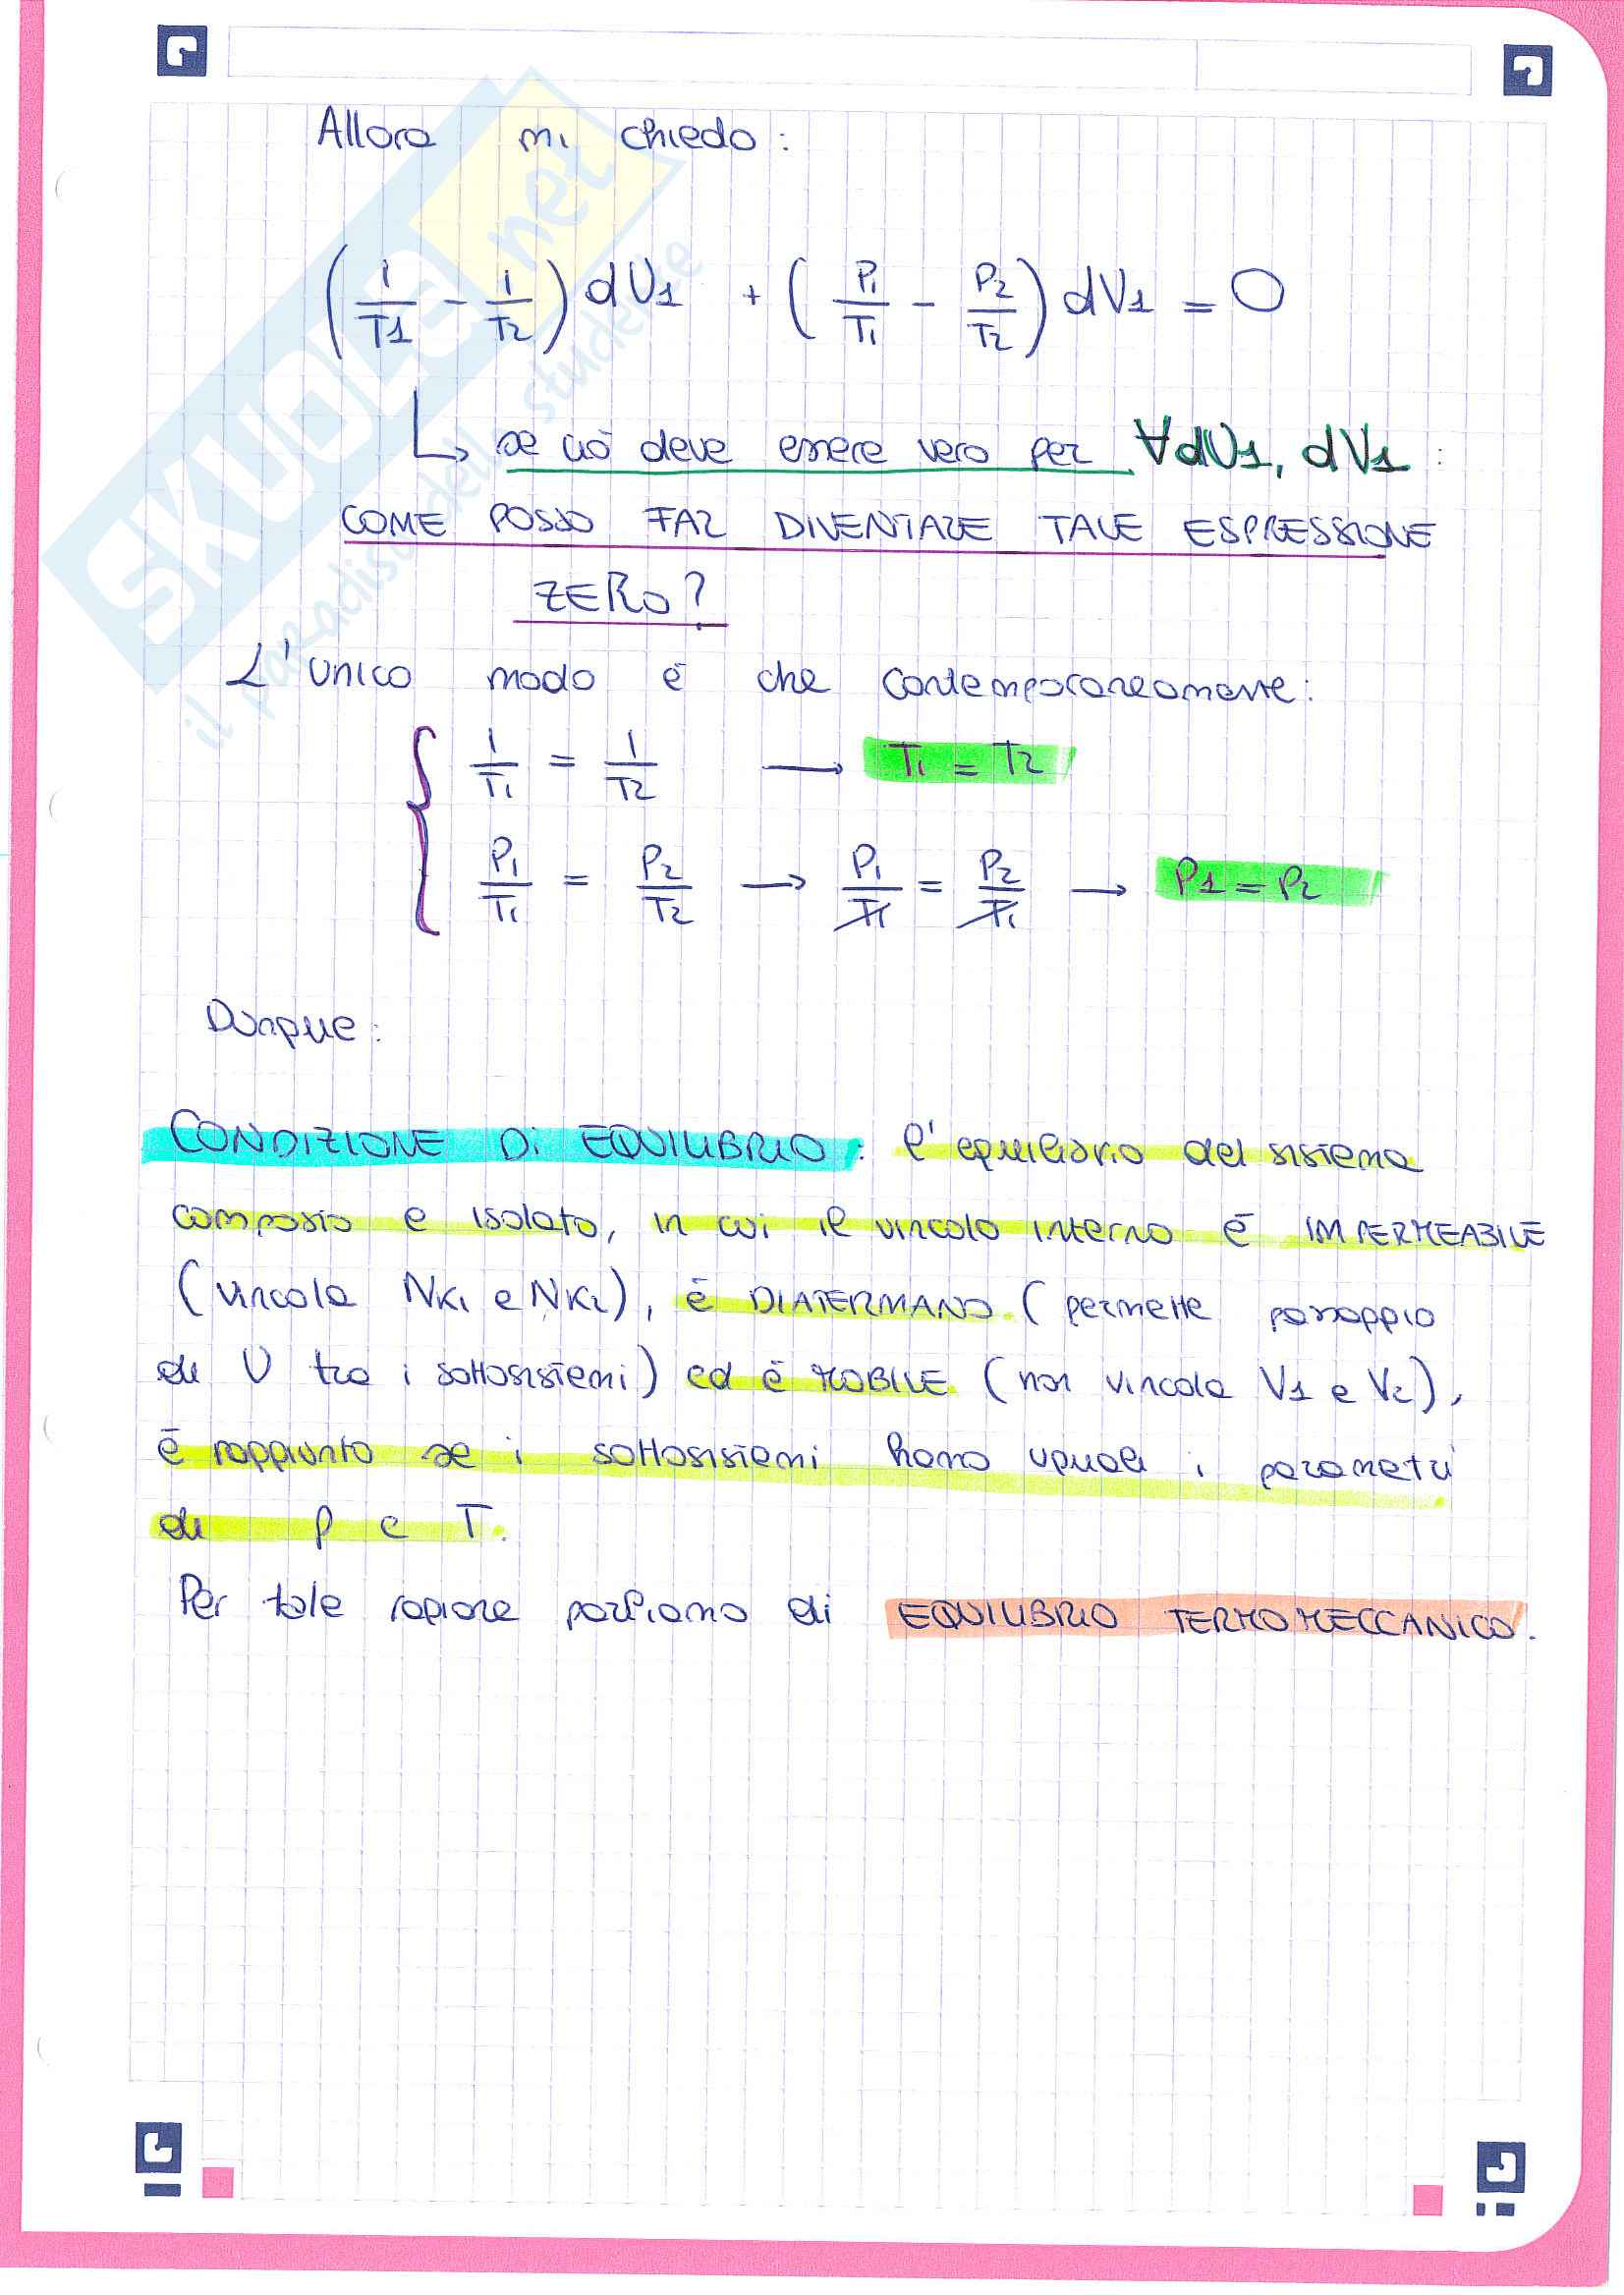 Allora mi chiedo:
(1/T1 - 1/T2) dU1 + (P1/T1 - P2/T2) dV1 = 0
↳ se ciò deve essere vero per ∀dU1, dV1:
COME POSSO FAR DIVENTARE TALE ESPRESSIONE
ZERO?
L'unico modo è che contemporaneamente:
{ 1/T1 = 1/T2 → T1 = T2
P1/T1 = P2/T2 → P1/T1 = P2/T1 → P1 = P2
Dunque:
CONDIZIONE DI EQUILIBRIO: l'equilibrio del sistema
composto e isolato, in cui il vincolo interno è IMPERMEABILE
(vincola NK1 e NK2), è DIATERMANO (permette passaggio
di U tra i sottosistemi) ed è MOBILE (non vincola V1 e V2),
è raggiunto se i sottosistemi hanno uguali i parametri
di P e T.
Per tale ragione parliamo di EQUILIBRIO TERMOMECCANICO.
SKUOLA.net
il paradiso dello studente